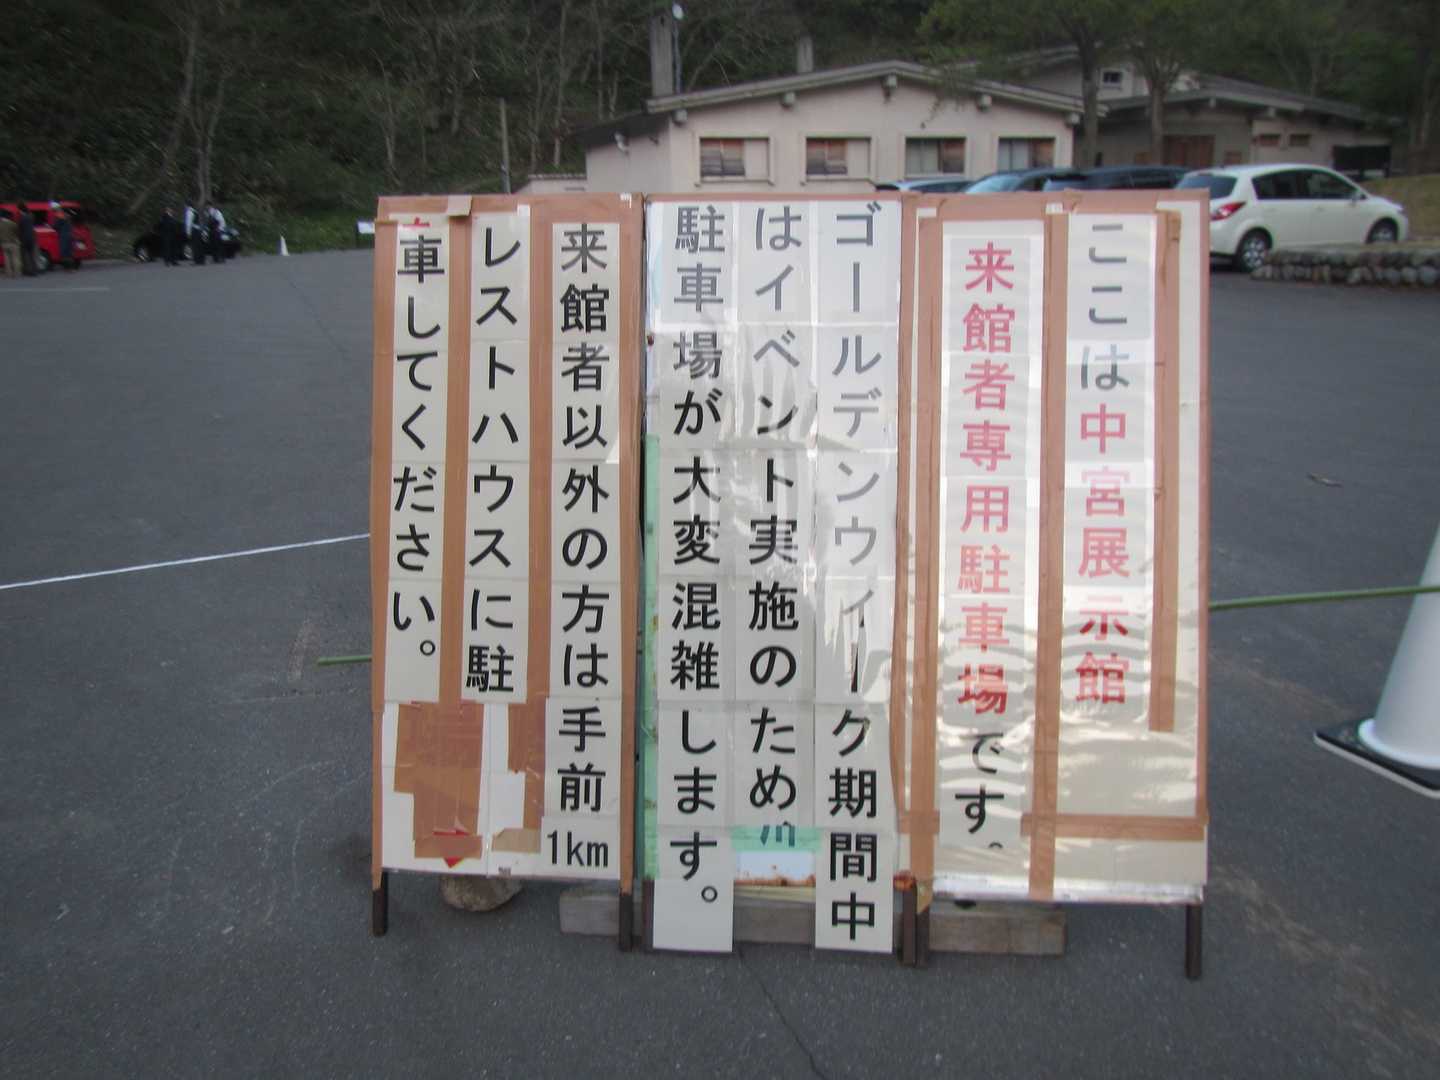 ここは中宮展示館
来館者専用駐車場です。
ゴールデンウィーク期間中
はイベント実施のため
駐車場が大変混雑します。
来館者以外の方は手前1km
レストハウスに駐
車してください。